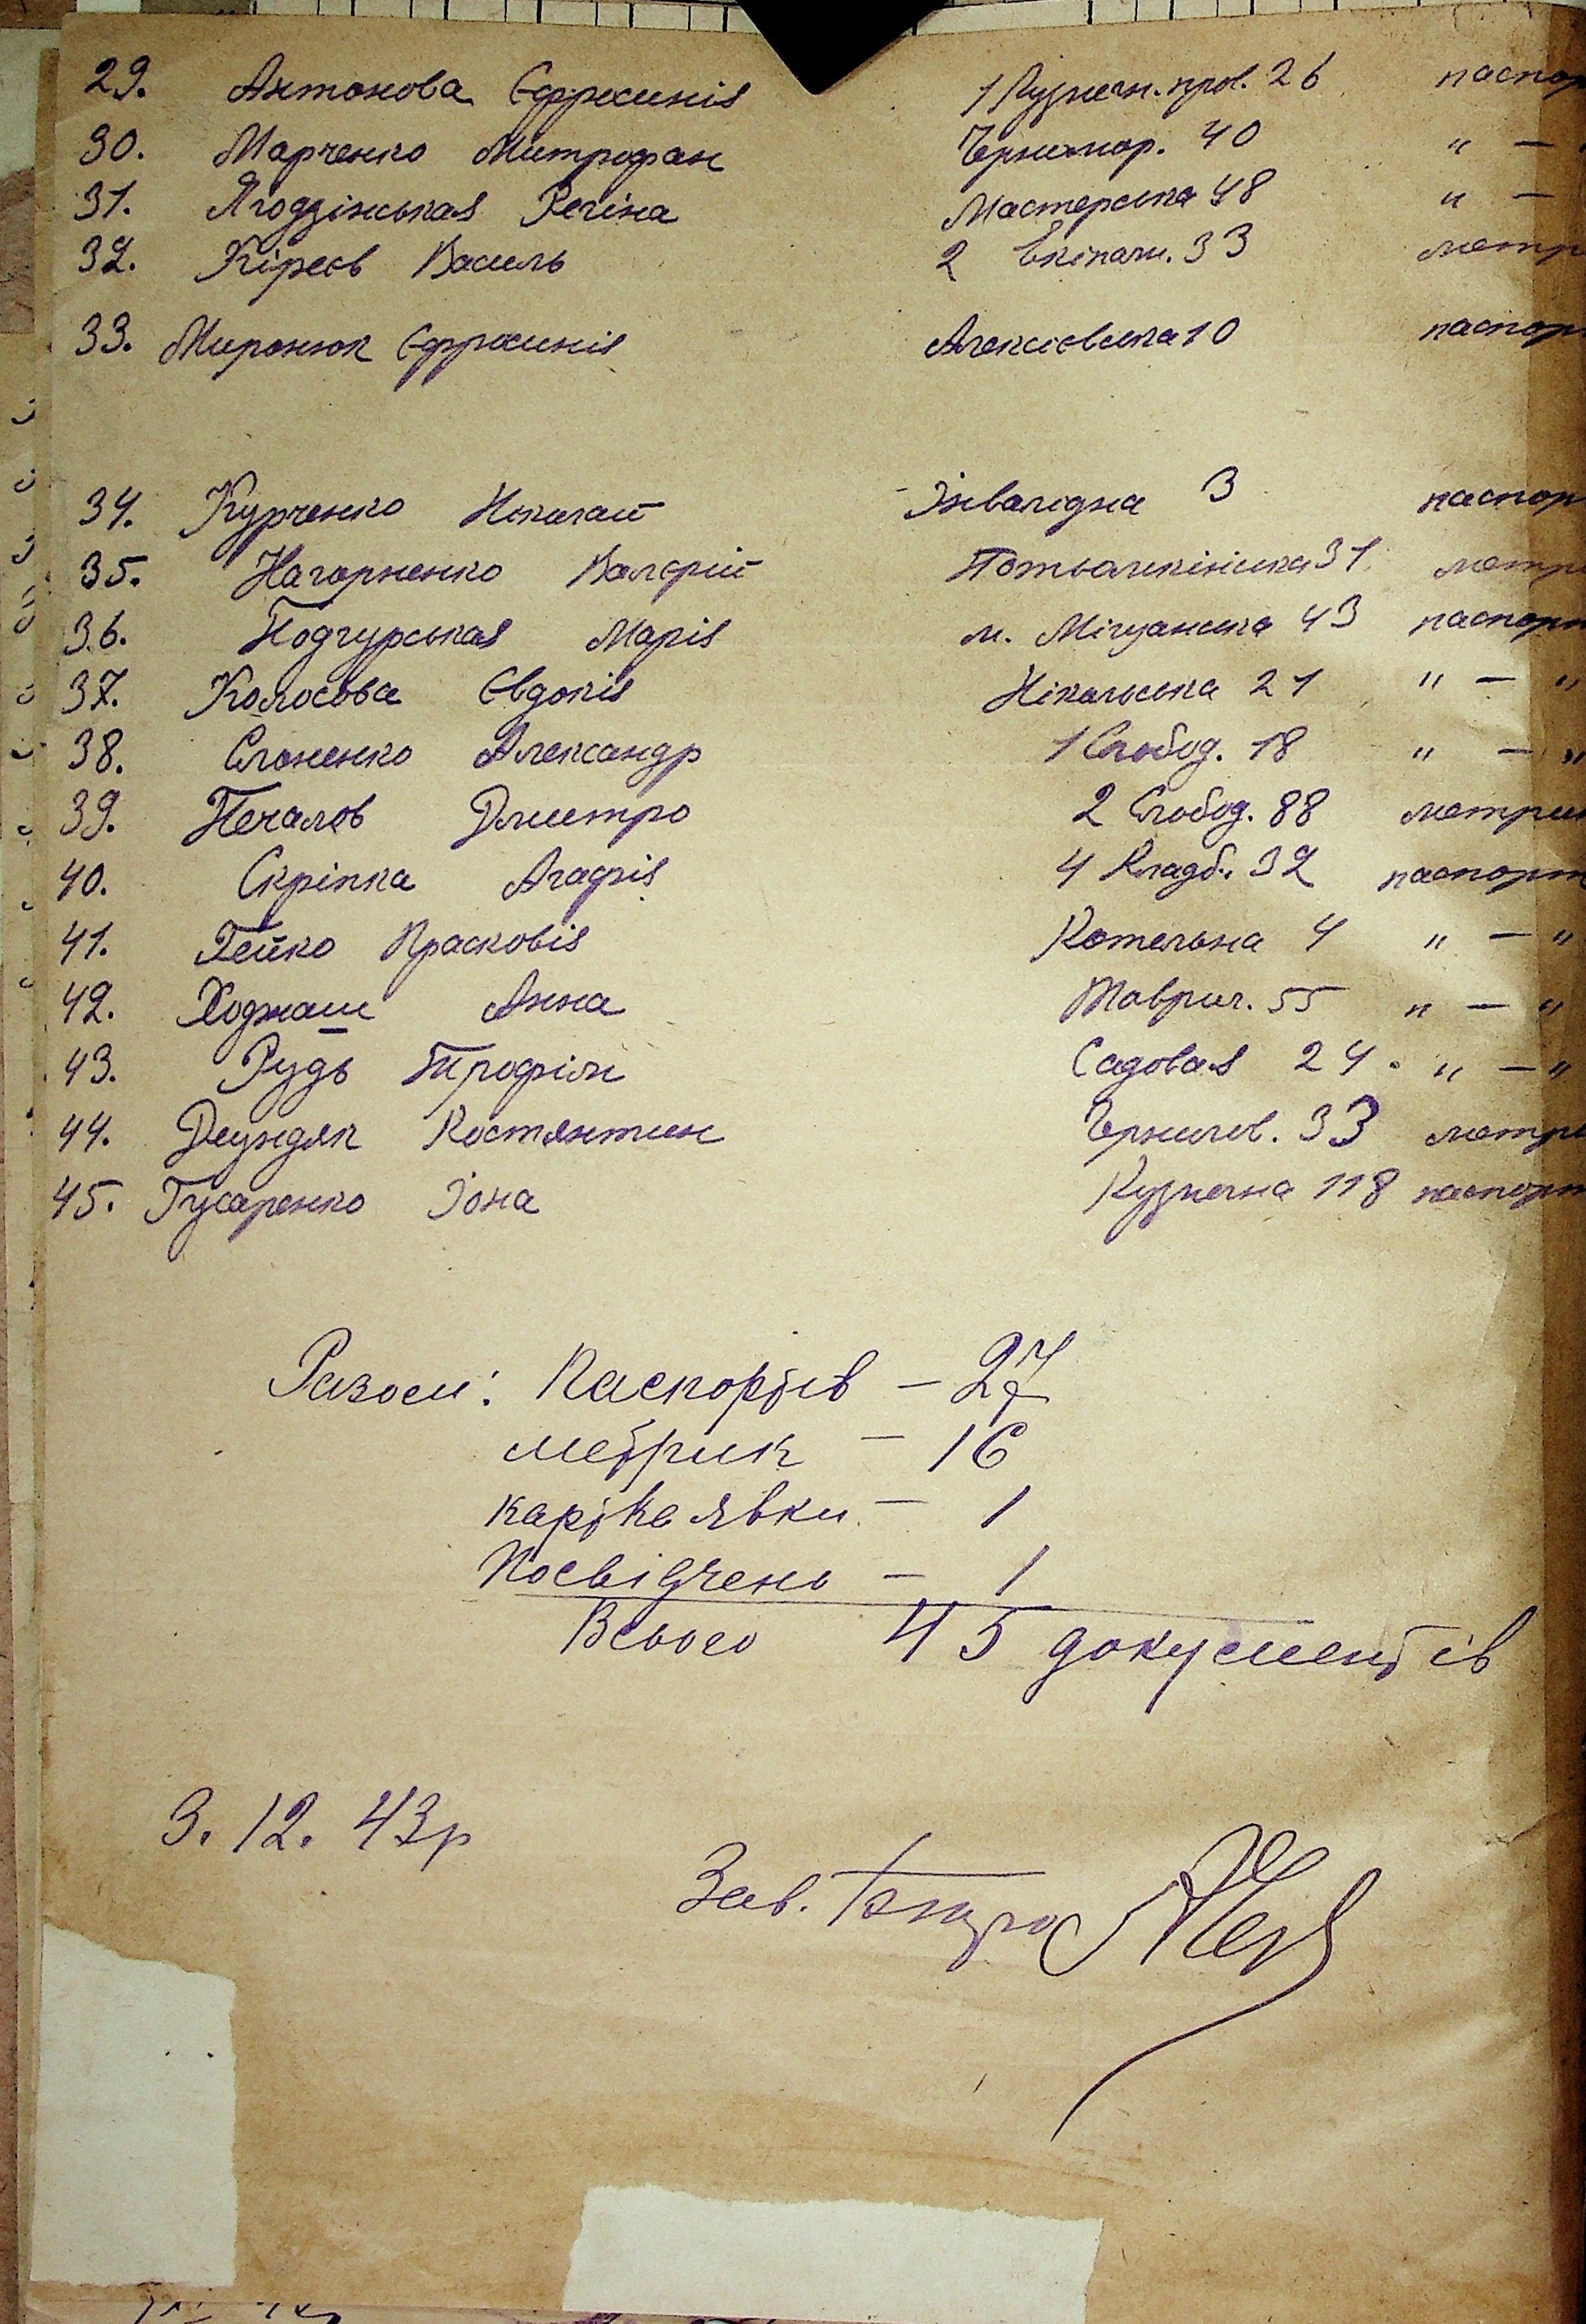 29. Антонова Єфросинія 1 Кузнечн. пров. 26 паспор
30. Марченко Митрофан Черномор. 40 " —
31. Ягодзінськая Регіна Мастерська 48 " —
32. Кірєєв Василь 2 Екіпажн. 33 метр
33. Миронюк Єфросинія Алексієвська 10 паспор
34. Курченко Ніколай Інвалідна 3 паспор
35. Нагорненко Валєрій Потьомкінська 31 метри
36. Подгурськая Марія м. Мігуанська 43 паспорт
37. Колосова Євдокія Нікольська 21 " — "
38. Слоненко Александр 1 Слобод. 18 " — "
39. Печалов Дмитро 2 Слобод. 88 метрик
40. Скріпка Агафія 4 Кладб. 32 паспорт
41. Гейко Прасковія Котельна 4 " — "
42. Ходжаш Анна Таврич. 55 " — "
43. Рудь Трофім Садовая 24. " — "
44. Деундяк Костянтин Чернигов. 33 метри
45. Гусаренко Іона Кузнечна 118 паспорт
Разом: Паспортів – 27
метрик – 16
картка явки – 1
Посвідчень – 1
Всього 45 документів
3. 12. 43р
Зав. Бюро